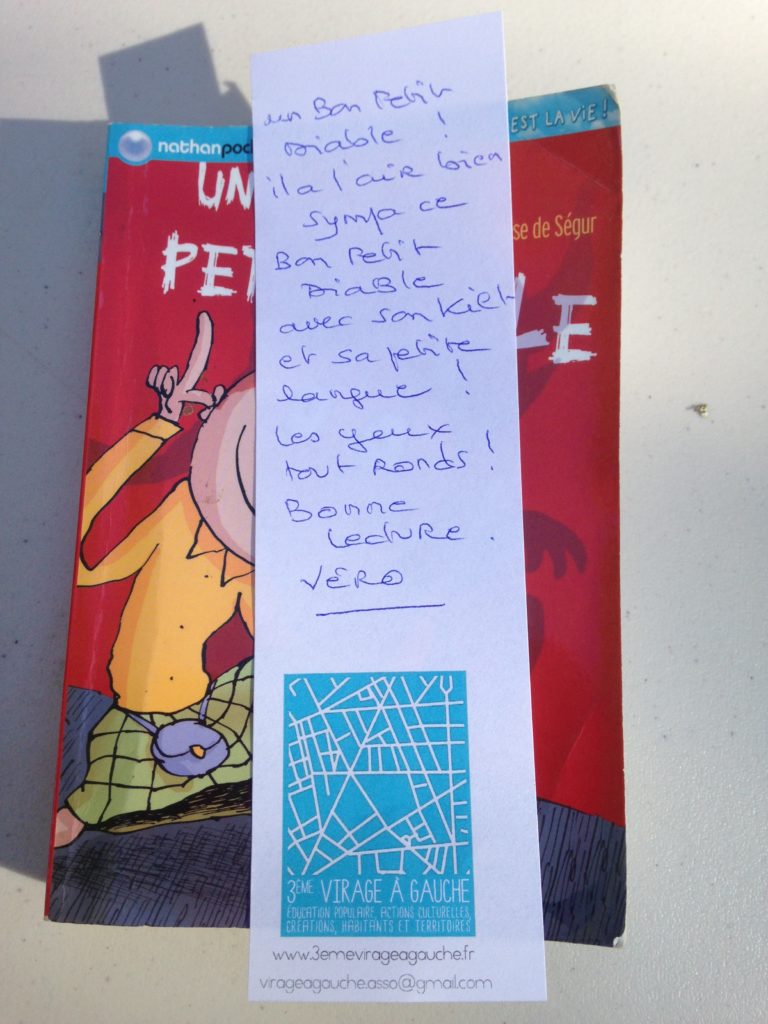 nathanpoc
EST LA VIE !
UN
se de Ségur
PET
LE
un Bon Petit
Diable !
il a l'air bien
sympa ce
Bon Petit
Diable
avec son Kilt
et sa petite
langue !
Les yeux
tout RONDS !
Bonne
Lecture.
VÉRO
3ÈME VIRAGE À GAUCHE
EDUCATION POPULAIRE, ACTIONS CULTURELLES,
CRÉATIONS, HABITANTS ET TERRITOIRES
www.3emevirageagauche.fr
virageagauche.asso@gmail.com